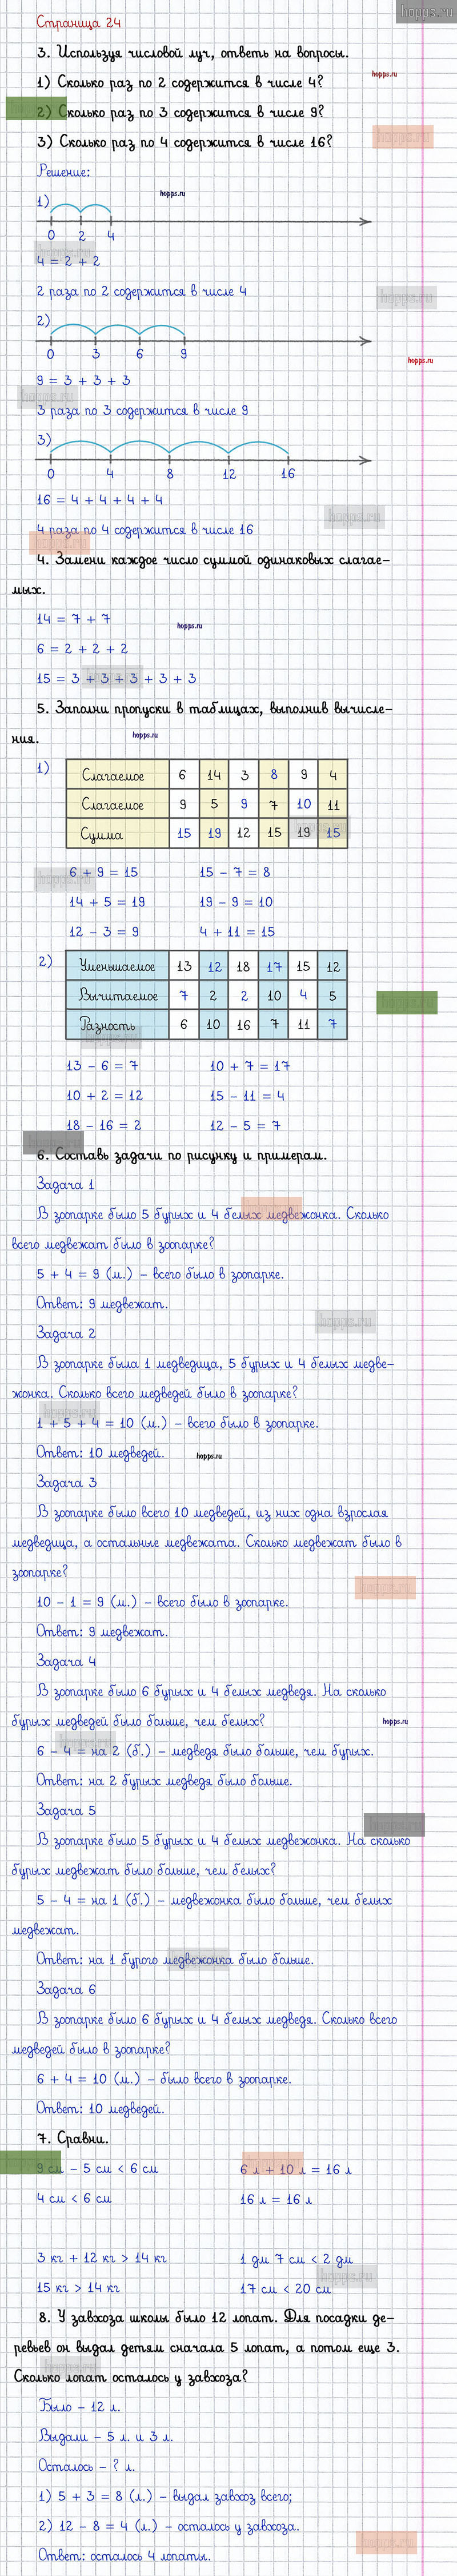 hopps.ru
Страница 24
3. Используя числовой луч, ответь на вопросы.
hopps.ru
1) Сколько раз по 2 содержится в числе 4?
2) Сколько раз по 3 содержится в числе 9?
3) Сколько раз по 4 содержится в числе 16?
Решение:
hopps.ru
1)
0 2 4
4 = 2 + 2
2 раза по 2 содержится в числе 4
hopps.ru
2)
0 3 6 9
hopps.ru
9 = 3 + 3 + 3
hopps.ru
3 раза по 3 содержится в числе 9
3)
0 4 8 12 16
16 = 4 + 4 + 4 + 4
hopps.ru
4 раза по 4 содержится в числе 16
4. Замени каждое число суммой одинаковых слагае-
мых.
14 = 7 + 7
hopps.ru
6 = 2 + 2 + 2
15 = 3 + 3 + 3 + 3 + 3
5. Заполни пропуски в таблицах, выполнив вычисле-
ния.
hopps.ru
1)
Слагаемое 6 14 3 8 9 4
Слагаемое 9 5 9 7 10 11
Сумма 15 19 12 15 19 15
6 + 9 = 15 15 - 7 = 8
14 + 5 = 19 19 - 9 = 10
12 - 3 = 9 4 + 11 = 15
2)
Уменьшаемое 13 12 18 17 15 12
Вычитаемое 7 2 2 10 4 5
Разность 6 10 16 7 11 7
13 - 6 = 7 10 + 7 = 17
10 + 2 = 12 15 - 11 = 4
18 - 16 = 2 12 - 5 = 7
6. Составь задачи по рисунку и примерам.
Задача 1
В зоопарке было 5 бурых и 4 белых медвежонка. Сколько
всего медвежат было в зоопарке?
5 + 4 = 9 (м.) - всего было в зоопарке.
Ответ: 9 медвежат.
hopps.ru
Задача 2
В зоопарке была 1 медведица, 5 бурых и 4 белых медве-
жонка. Сколько всего медведей было в зоопарке?
1 + 5 + 4 = 10 (м.) - всего было в зоопарке.
Ответ: 10 медведей.
hopps.ru
Задача 3
В зоопарке было всего 10 медведей, из них одна взрослая
медведица, а остальные медвежата. Сколько медвежат было в
зоопарке?
hopps.ru
10 - 1 = 9 (м.) - всего было в зоопарке.
Ответ: 9 медвежат.
Задача 4
В зоопарке было 6 бурых и 4 белых медведя. На сколько
бурых медведей было больше, чем белых?
hopps.ru
6 - 4 = на 2 (б.) - медведя было больше, чем бурых.
Ответ: на 2 бурых медведя было больше.
Задача 5
В зоопарке было 5 бурых и 4 белых медвежонка. На сколько
бурых медвежат было больше, чем белых?
5 - 4 = на 1 (б.) - медвежонка было больше, чем белых
медвежат.
Ответ: на 1 бурого медвежонка было больше.
Задача 6
В зоопарке было 6 бурых и 4 белых медведя. Сколько всего
медведей было в зоопарке?
6 + 4 = 10 (м.) - было всего в зоопарке.
Ответ: 10 медведей.
7. Сравни.
9 см - 5 см < 6 см 6 л + 10 л = 16 л
4 см < 6 см 16 л = 16 л
3 кг + 12 кг > 14 кг 1 дм 7 см < 2 дм
15 кг > 14 кг 17 см < 20 см
8. У завхоза школы было 12 лопат. Для посадки де-
ревьев он выдал детям сначала 5 лопат, а потом еще 3.
Сколько лопат осталось у завхоза?
Было - 12 л.
Выдали - 5 л. и 3 л.
Осталось - ? л.
1) 5 + 3 = 8 (л.) - выдал завхоз всего;
2) 12 - 8 = 4 (л.) - осталось у завхоза.
hopps.ru
Ответ: осталось 4 лопаты.